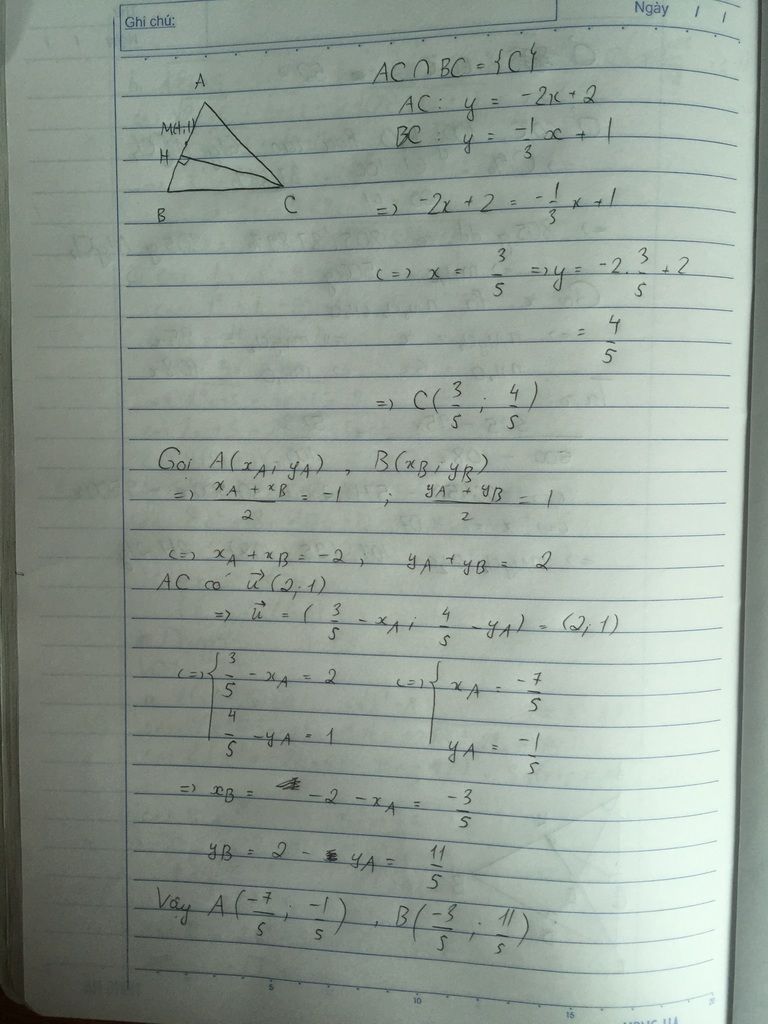 Ghi chú:
Ngày / /
AC ∩ BC = {C}
A
M(-1;1)
H
B
C
AC: y = -2x + 2
BC: y = -1/3 x + 1
=> -2x + 2 = -1/3 x + 1
<=> x = 3/5 => y = -2. 3/5 + 2
= 4/5
=> C(3/5 ; 4/5)
Gọi A(xA; yA) , B(xB; yB)
=> (xA + xB)/2 = -1 ; (yA + yB)/2 = 1
<=> xA + xB = -2 ; yA + yB = 2
AC có u⃗(2;1)
=> u⃗ = (3/5 - xA ; 4/5 - yA) = (2;1)
<=> { 3/5 - xA = 2 <=> { xA = -7/5
4/5 - yA = 1 yA = -1/5
=> xB = -2 - xA = -3/5
yB = 2 - yA = 11/5
Vậy A(-7/5 ; -1/5) , B(-3/5 ; 11/5)
5 10 15 20